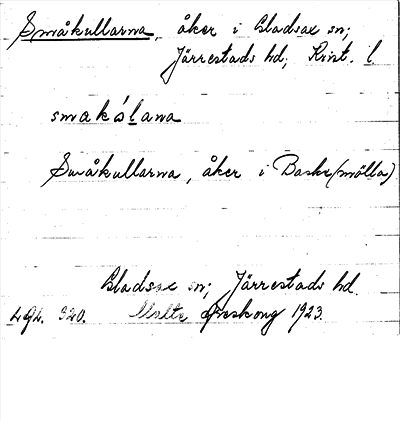 Småkullarna, åker i Gladsax sn;
Järrestads hd; Krist. l.
smakúlana
Småkullarna, åker i Baske(mölla)
Gladsax sn; Järrestads hd.
Malte 1923.